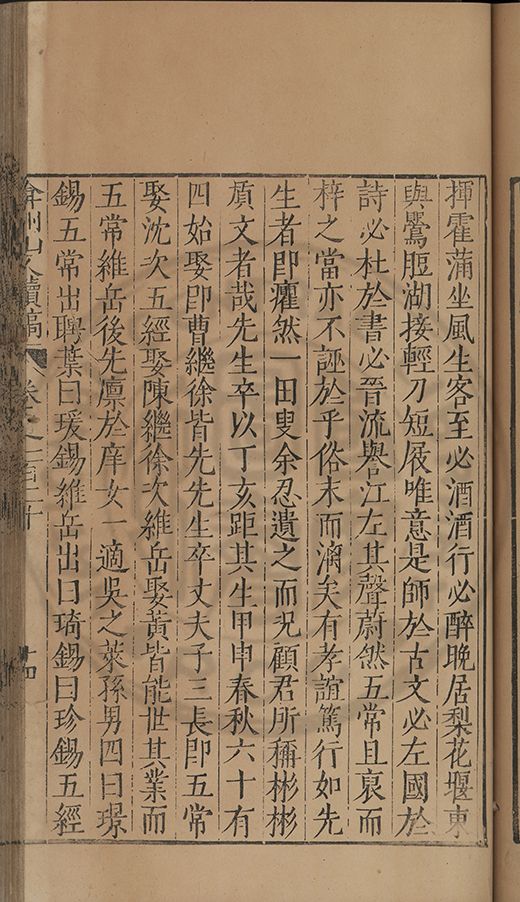 揮霍蒲坐風生客至必酒酒行必醉晚居梨花堰東
與鶯脰湖接輕刀短屐唯意是師於古文必左國於
詩必杜於書必晉流譽江左其聲蔚然五常且哀而
梓之當亦不誣於乎俗末而漓矣有孝誼篤行如先
生者即癯然一田叟余忍遺之而況顧君所稱彬彬
質文者哉先生卒以丁亥距其生甲申春秋六十有
四始娶即曹繼徐皆先先生卒丈夫子三長即五常
娶沈次五經娶陳繼徐次維岳娶黃皆能世其業而
五常維岳後先廩於庠女一適吳之萊孫男四曰璟
錫五常出聘葉曰瑗錫維岳出曰琦錫曰珍錫五經
弇州山人續稿 卷之一百二十 十四